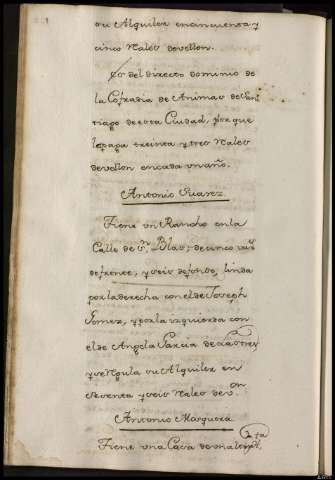 su Alquiler en cincuenta y
cinco Reales de vellon.
Es del directo dominio de
la Cofradia de Animas de San
tiago de esta Ciudad, por que
le paga treinta y tres Reales
de vellon en cada un año.
Antonio Suarez
Tiene un Rancho en la
Calle de Sn. Blas, de cinco
de frente, y seis de fondo, linda
por la derecha con el de Joseph
Gomez, y por la izquierda con
el de Angela Garcia de
y se Regula su Alquiler en
sesenta y seis Reales de von
Antonio Marquera
Tiene una Casa de